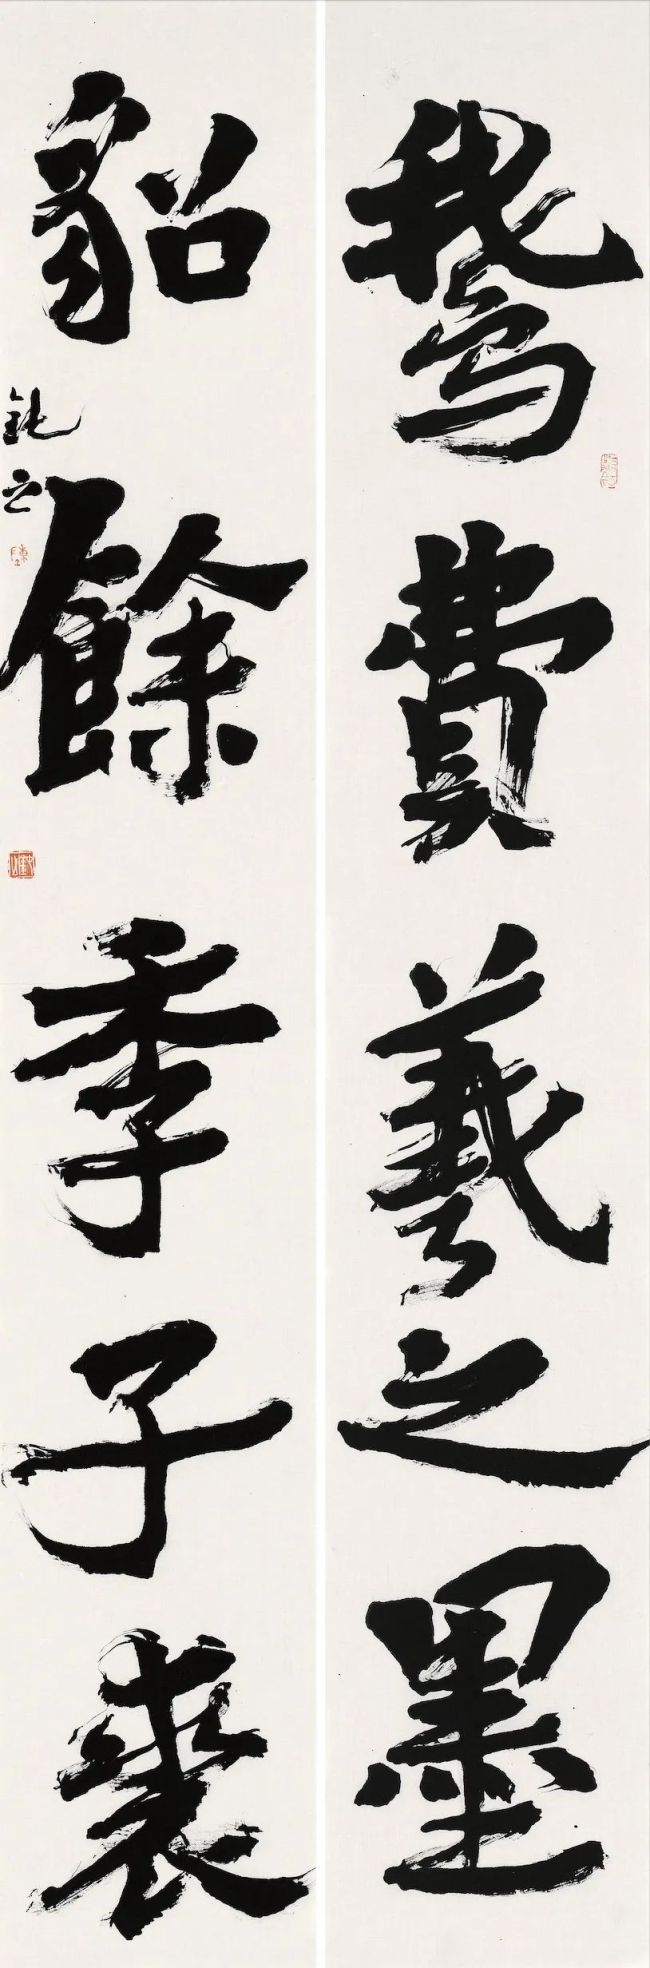 鵞費羲之墨
貂餘季子裘
鈍之